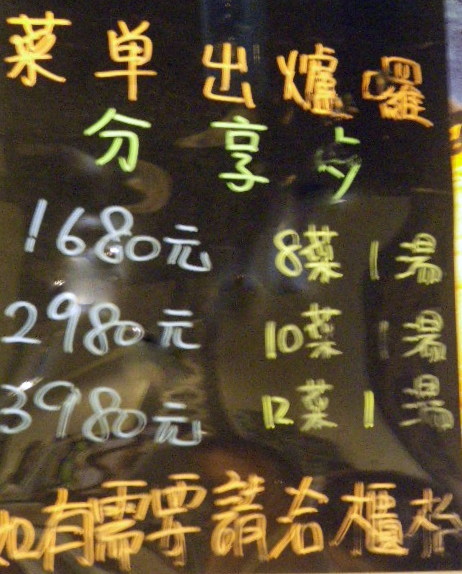 菜单出爐囉
分享
1680元 8菜1湯
2980元 10菜1湯
3980元 12菜1湯
如有需要請右櫃